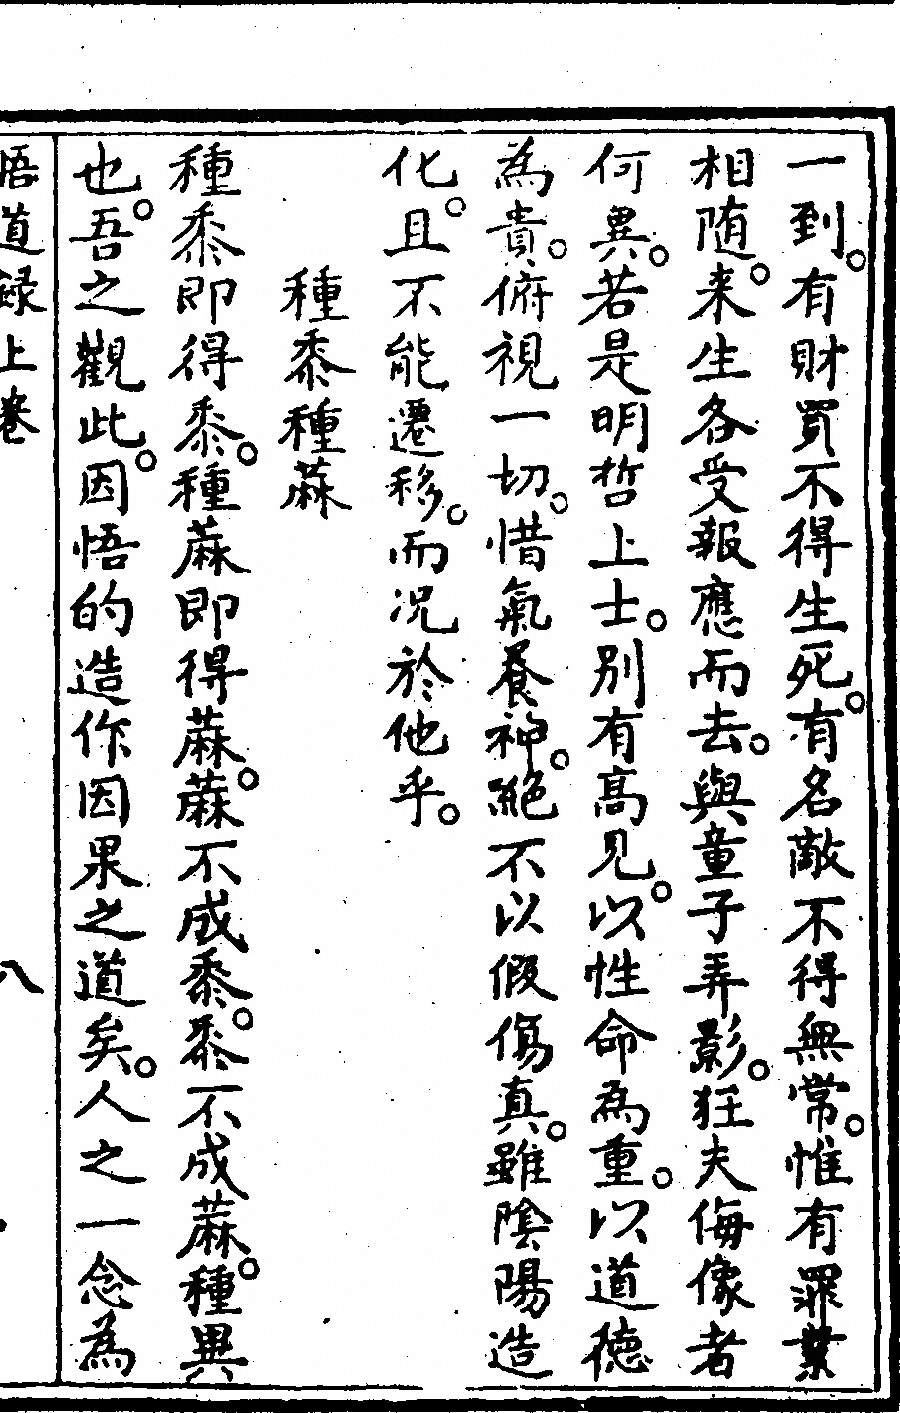 一到。有財買不得生死。有名敵不得無常。惟有罪業
相随。来生各受報應而去。與童子弄影。狂夫侮像者
何異。若是明哲上士。別有高見。以性命為重。以道德
為貴。俯視一切。惜氣養神。絕不以假傷真。雖陰陽造
化。且不能遷移。而况於他乎。
種黍種蔴
種黍即得黍。種蔴即得蔴。蔴不成黍。黍不成蔴。種異
也。吾之觀此。因悟的造作因果之道矣。人之一念為
悟道録上卷 八